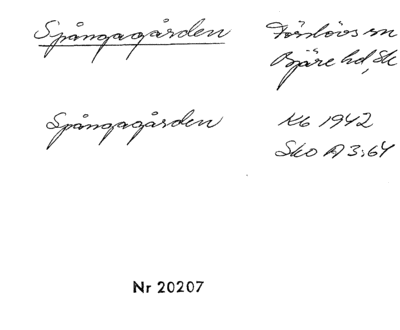 Spångagården
Förslövs sn
Bjäre hd, Sk
Spångagården
Kb 1942
Sko A 3:64
Nr 20207